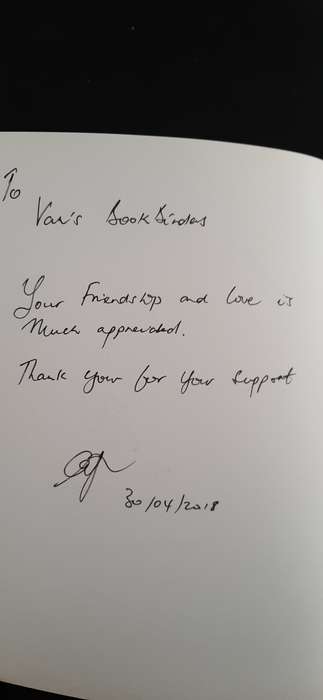 To
Van's Bookbinders
Your Friendship and love is
Much appreciated.
Thank your for your support
30/04/2018